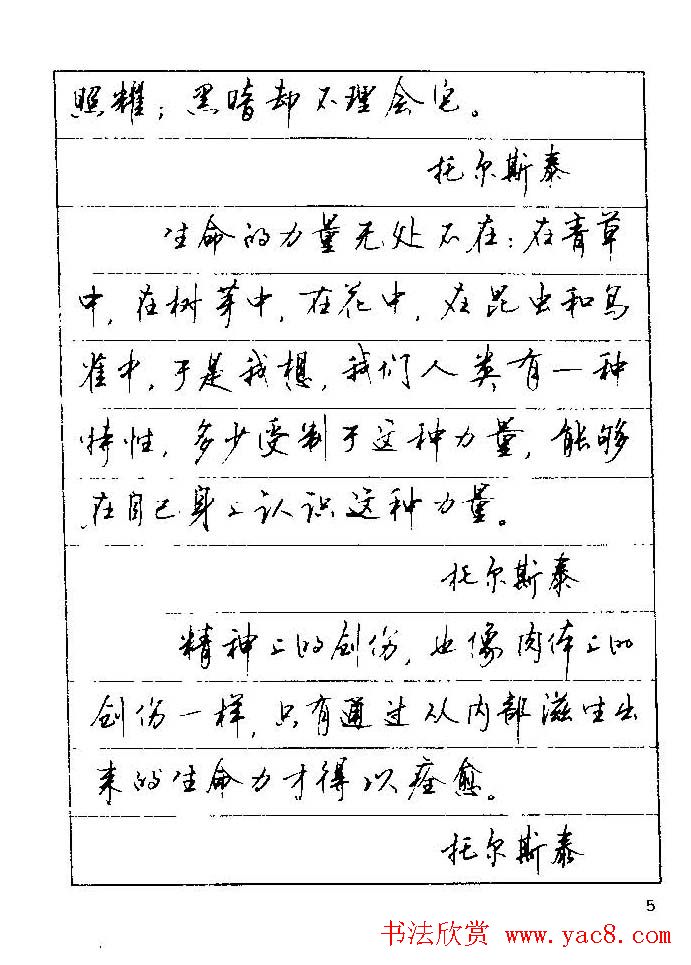 照耀；黑暗却不理会它。
托尔斯泰
生命的力量无处不在：在青草
中，在树芽中，在花中，在昆虫和鸟
雀中，于是我想，我们人类有一种
特性，多少受制于这种力量，能够
在自己身上认识这种力量。
托尔斯泰
精神上的创伤，也像肉体上的
创伤一样，只有通过从内部滋生出
来的生命力才得以痊愈。
托尔斯泰
5
书法欣赏 www.yac8.com